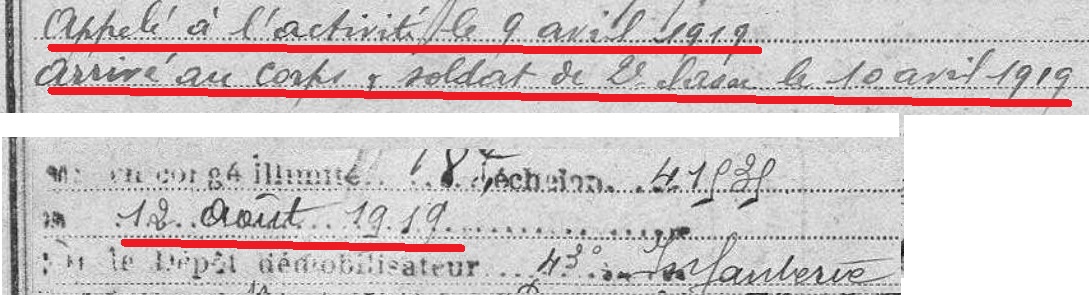 Appelé à l'activité le 9 avril 1919
Arrivé au corps, soldat de 2e classe le 10 avril 1919
en congé illimité échelon
12 Août 1919
le Dépôt démobilisateur 43e Infanterie